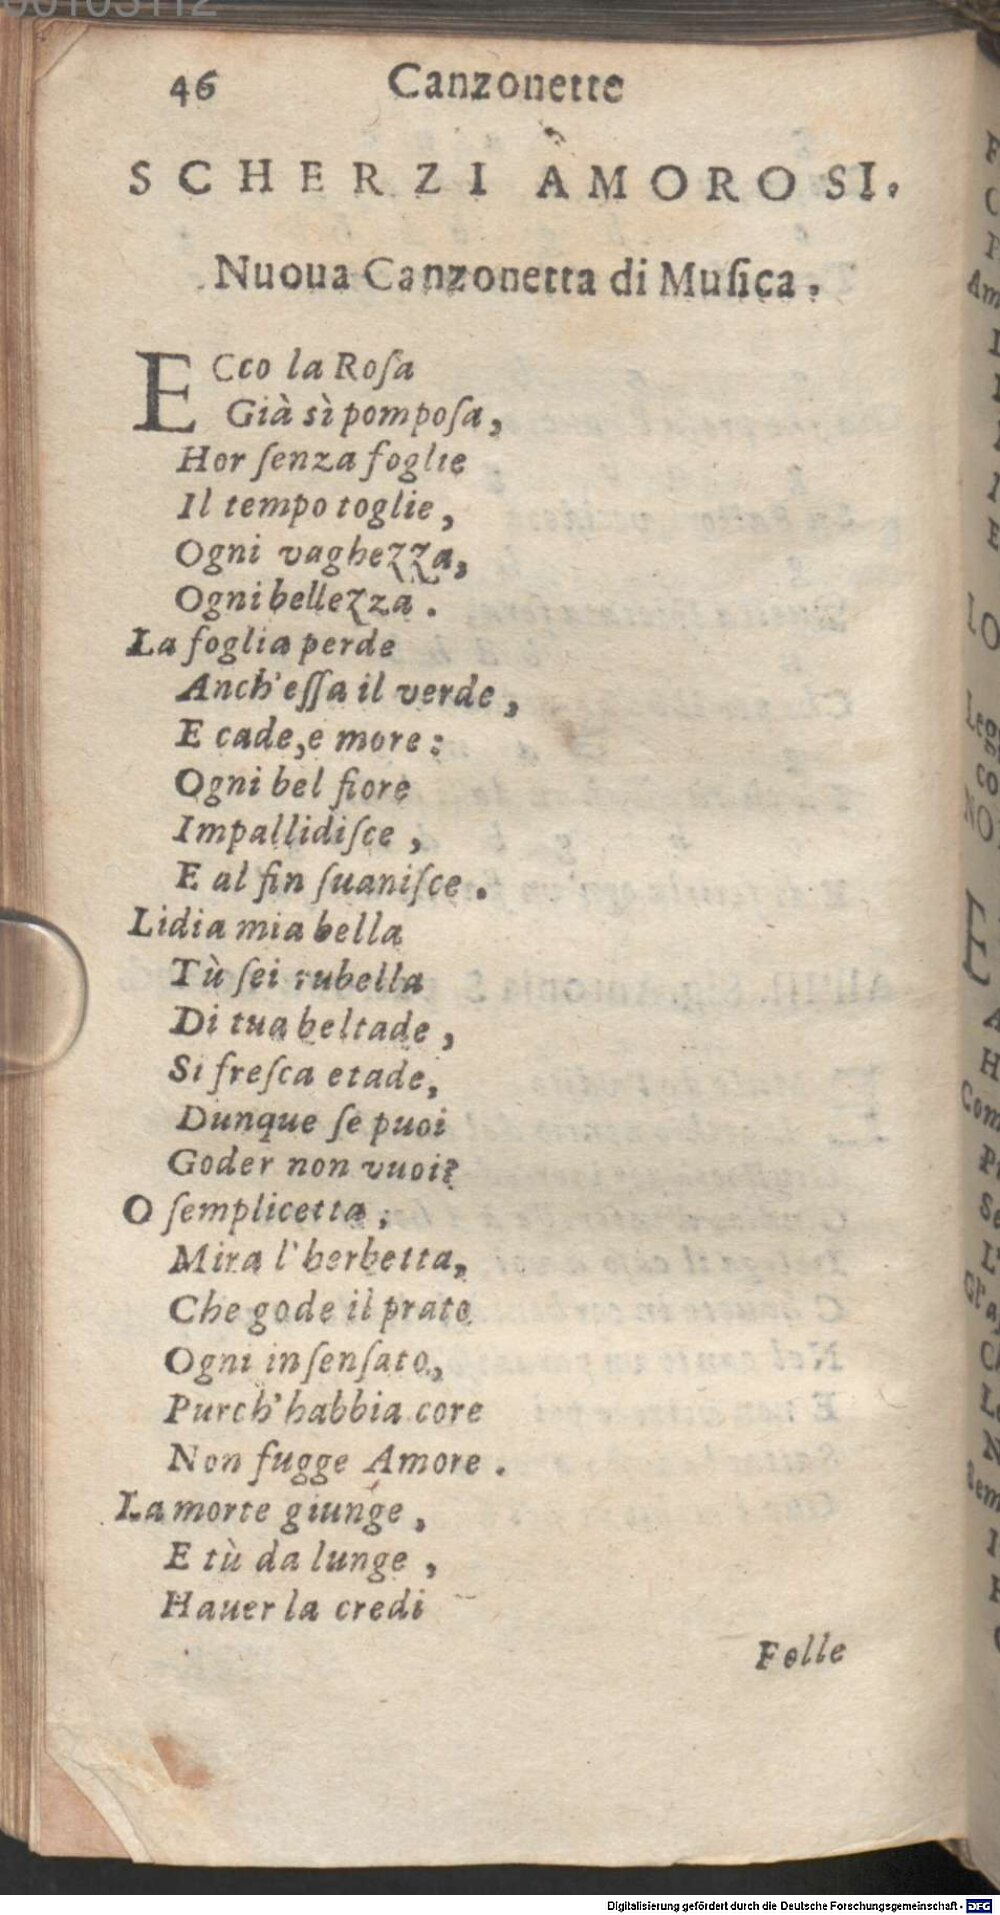 46 Canzonette
SCHERZI AMOROSI.
Nuoua Canzonetta di Muſica.
ECco la Roſa
Già sì pompoſa,
Hor ſenza foglie
Il tempo toglie,
Ogni vaghezza,
Ogni bellezza.
La foglia perde
Anch'eſſa il verde,
E cade, e more:
Ogni bel fiore
Impallidiſce,
E al fin ſuaniſce.
Lidia mia bella
Tù ſei rubella
Di tua beltade,
Si freſca etade,
Dunque ſe puoi
Goder non vuoi?
O ſemplicetta,
Mira l'herbetta,
Che gode il prato
Ogni inſenſato,
Purch'habbia core
Non fugge Amore.
La morte giunge,
E tù da lunge,
Hauer la credi
Folle
Digitalisierung gefördert durch die Deutsche Forschungsgemeinschaft - DFG